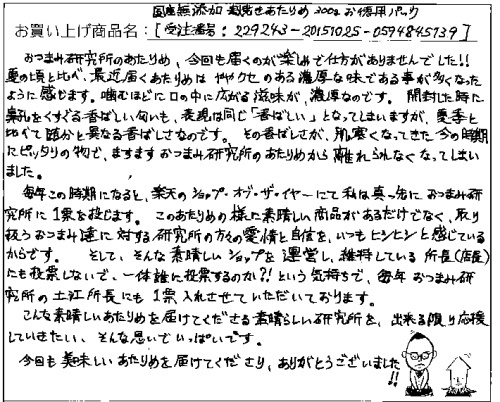 国産無添加 超過ぎあたりめ 300g お徳用パック
お買い上げ商品名：[受注番号：229243-20151025-0594845739]
おつまみ研究所のあたりめ、今回も届くのが楽しみで仕方がありませんでした!!
夏の頃と比べ、最近届くあたりめは ややクセのある濃厚な味である事が多くなった
ように感じます。噛むほどに口の中に広がる滋味が、濃厚なのです。開封した時に
鼻孔をくすぐる香ばしい匂いも、表現は同じ「香ばしい」となってしまいますが、夏季と
比べて随分と異なる香ばしさなのです。その香ばしさが、肌寒くなってきた今の時期
にピッタリの物で、ますますおつまみ研究所のあたりめから離れられなくなってしまい
ました。
毎年この時期になると、楽天のショップ・オブ・ザ・イヤーにて私は真っ先におつまみ研
究所に1票を投じます。このあたりめの様に素晴しい商品があるだけでなく、取り
扱うおつまみ達に対する研究所の方々の愛情と自信を、いつもヒシヒシと感じている
からです。そして、そんな素晴しいショップを運営し、維持している所長(店長)
にも投票しないで、一体誰に投票するのか?!という気持ちで、毎年おつまみ研
究所の土江所長にも1票入れさせていただいております。
こんな素晴しいあたりめを届けてくださる素晴らしい研究所を、出来る限り応援
していきたい、そんな思いでいっぱいです。
今回も美味しいあたりめを届けてくださり、ありがとうございました!!